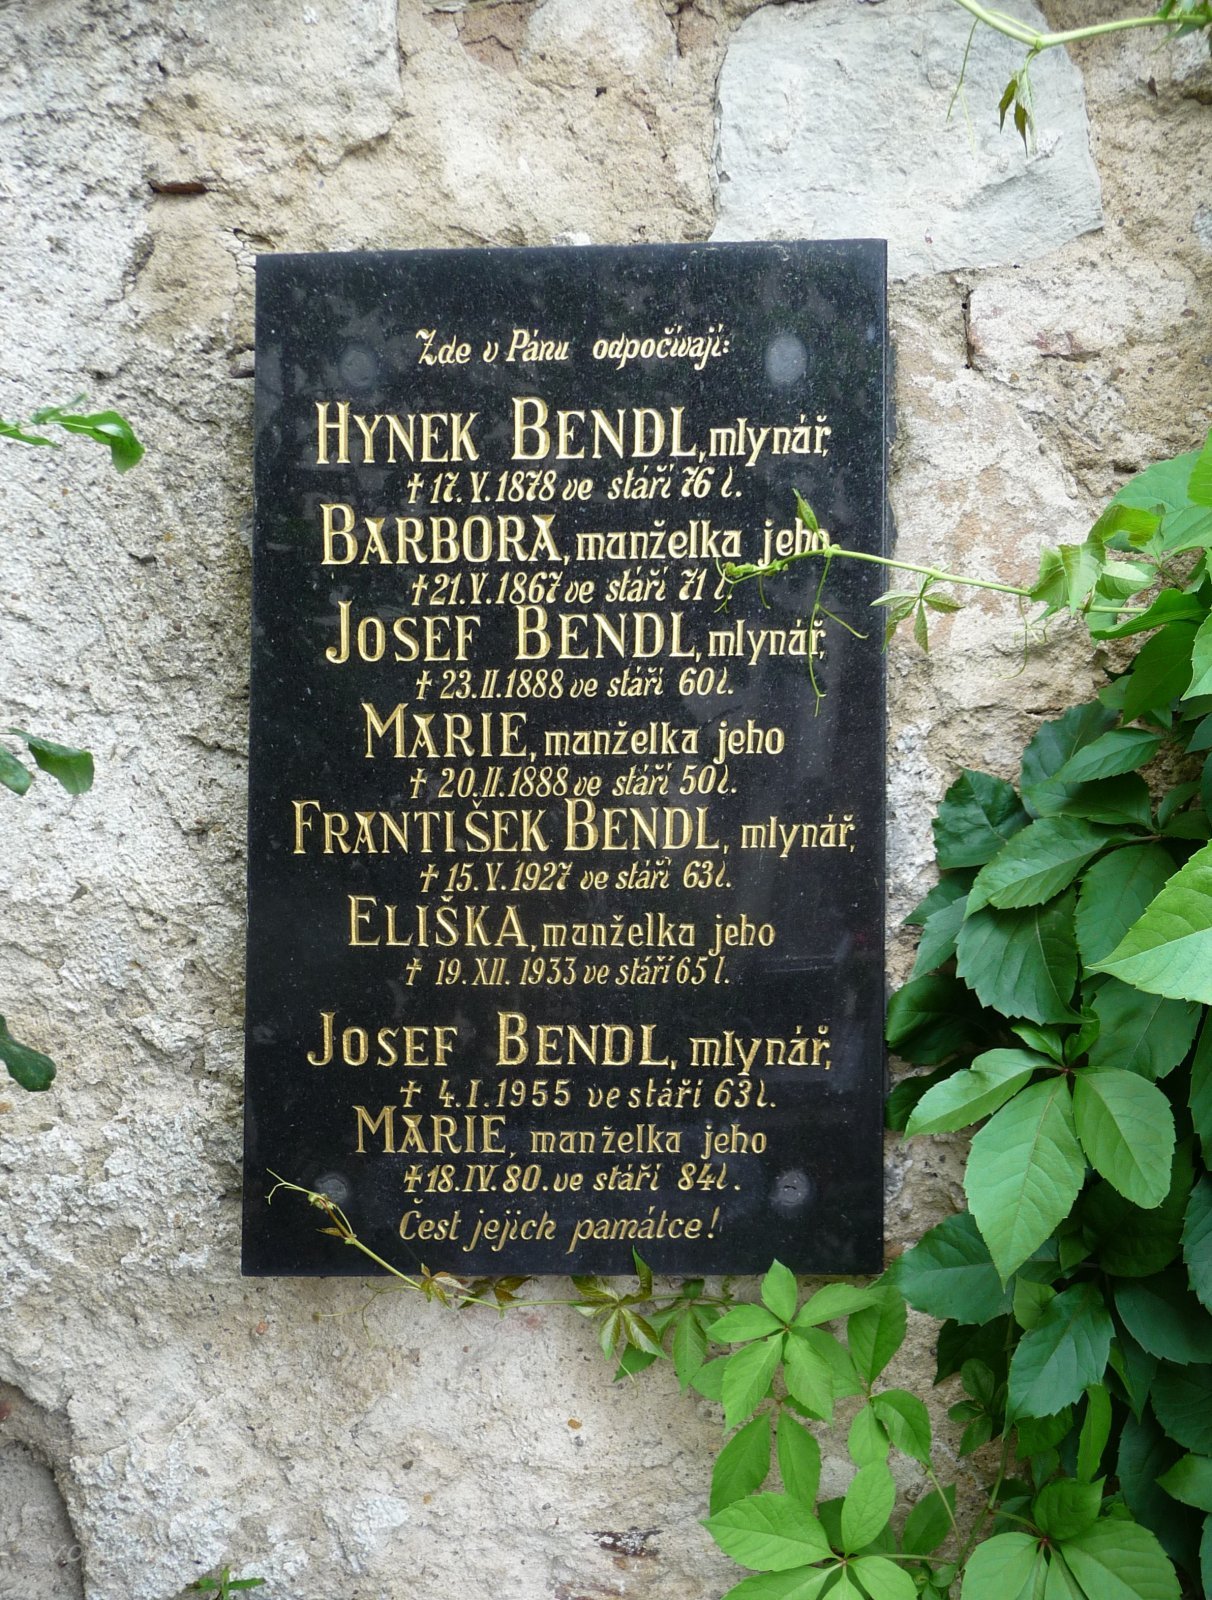 Zde v Pánu odpočívají:
HYNEK BENDL, mlynář,
† 17. V. 1878 ve stáří 76 l.
BARBORA, manželka jeho
† 21. V. 1867 ve stáří 71 l.
JOSEF BENDL, mlynář,
† 23. II. 1888 ve stáří 60 l.
MARIE, manželka jeho
† 20. II. 1888 ve stáří 50 l.
FRANTIŠEK BENDL, mlynář,
† 15. V. 1927 ve stáří 63 l.
ELIŠKA, manželka jeho
† 19. XII. 1933 ve stáří 65 l.
JOSEF BENDL, mlynář,
† 4. I. 1955 ve stáří 63 l.
MARIE, manželka jeho
† 18. IV. 80. ve stáří 84 l.
Čest jejich památce!